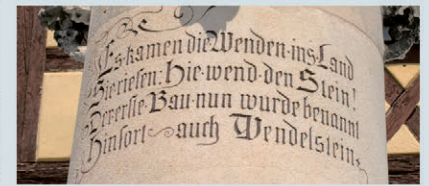 Es·kamen die Wenden·ins Land
Sie riefen: Hie·wend·den Stein!
Der erste·Bau·nun wurde benannt
Hinfort auch Wendelstein.